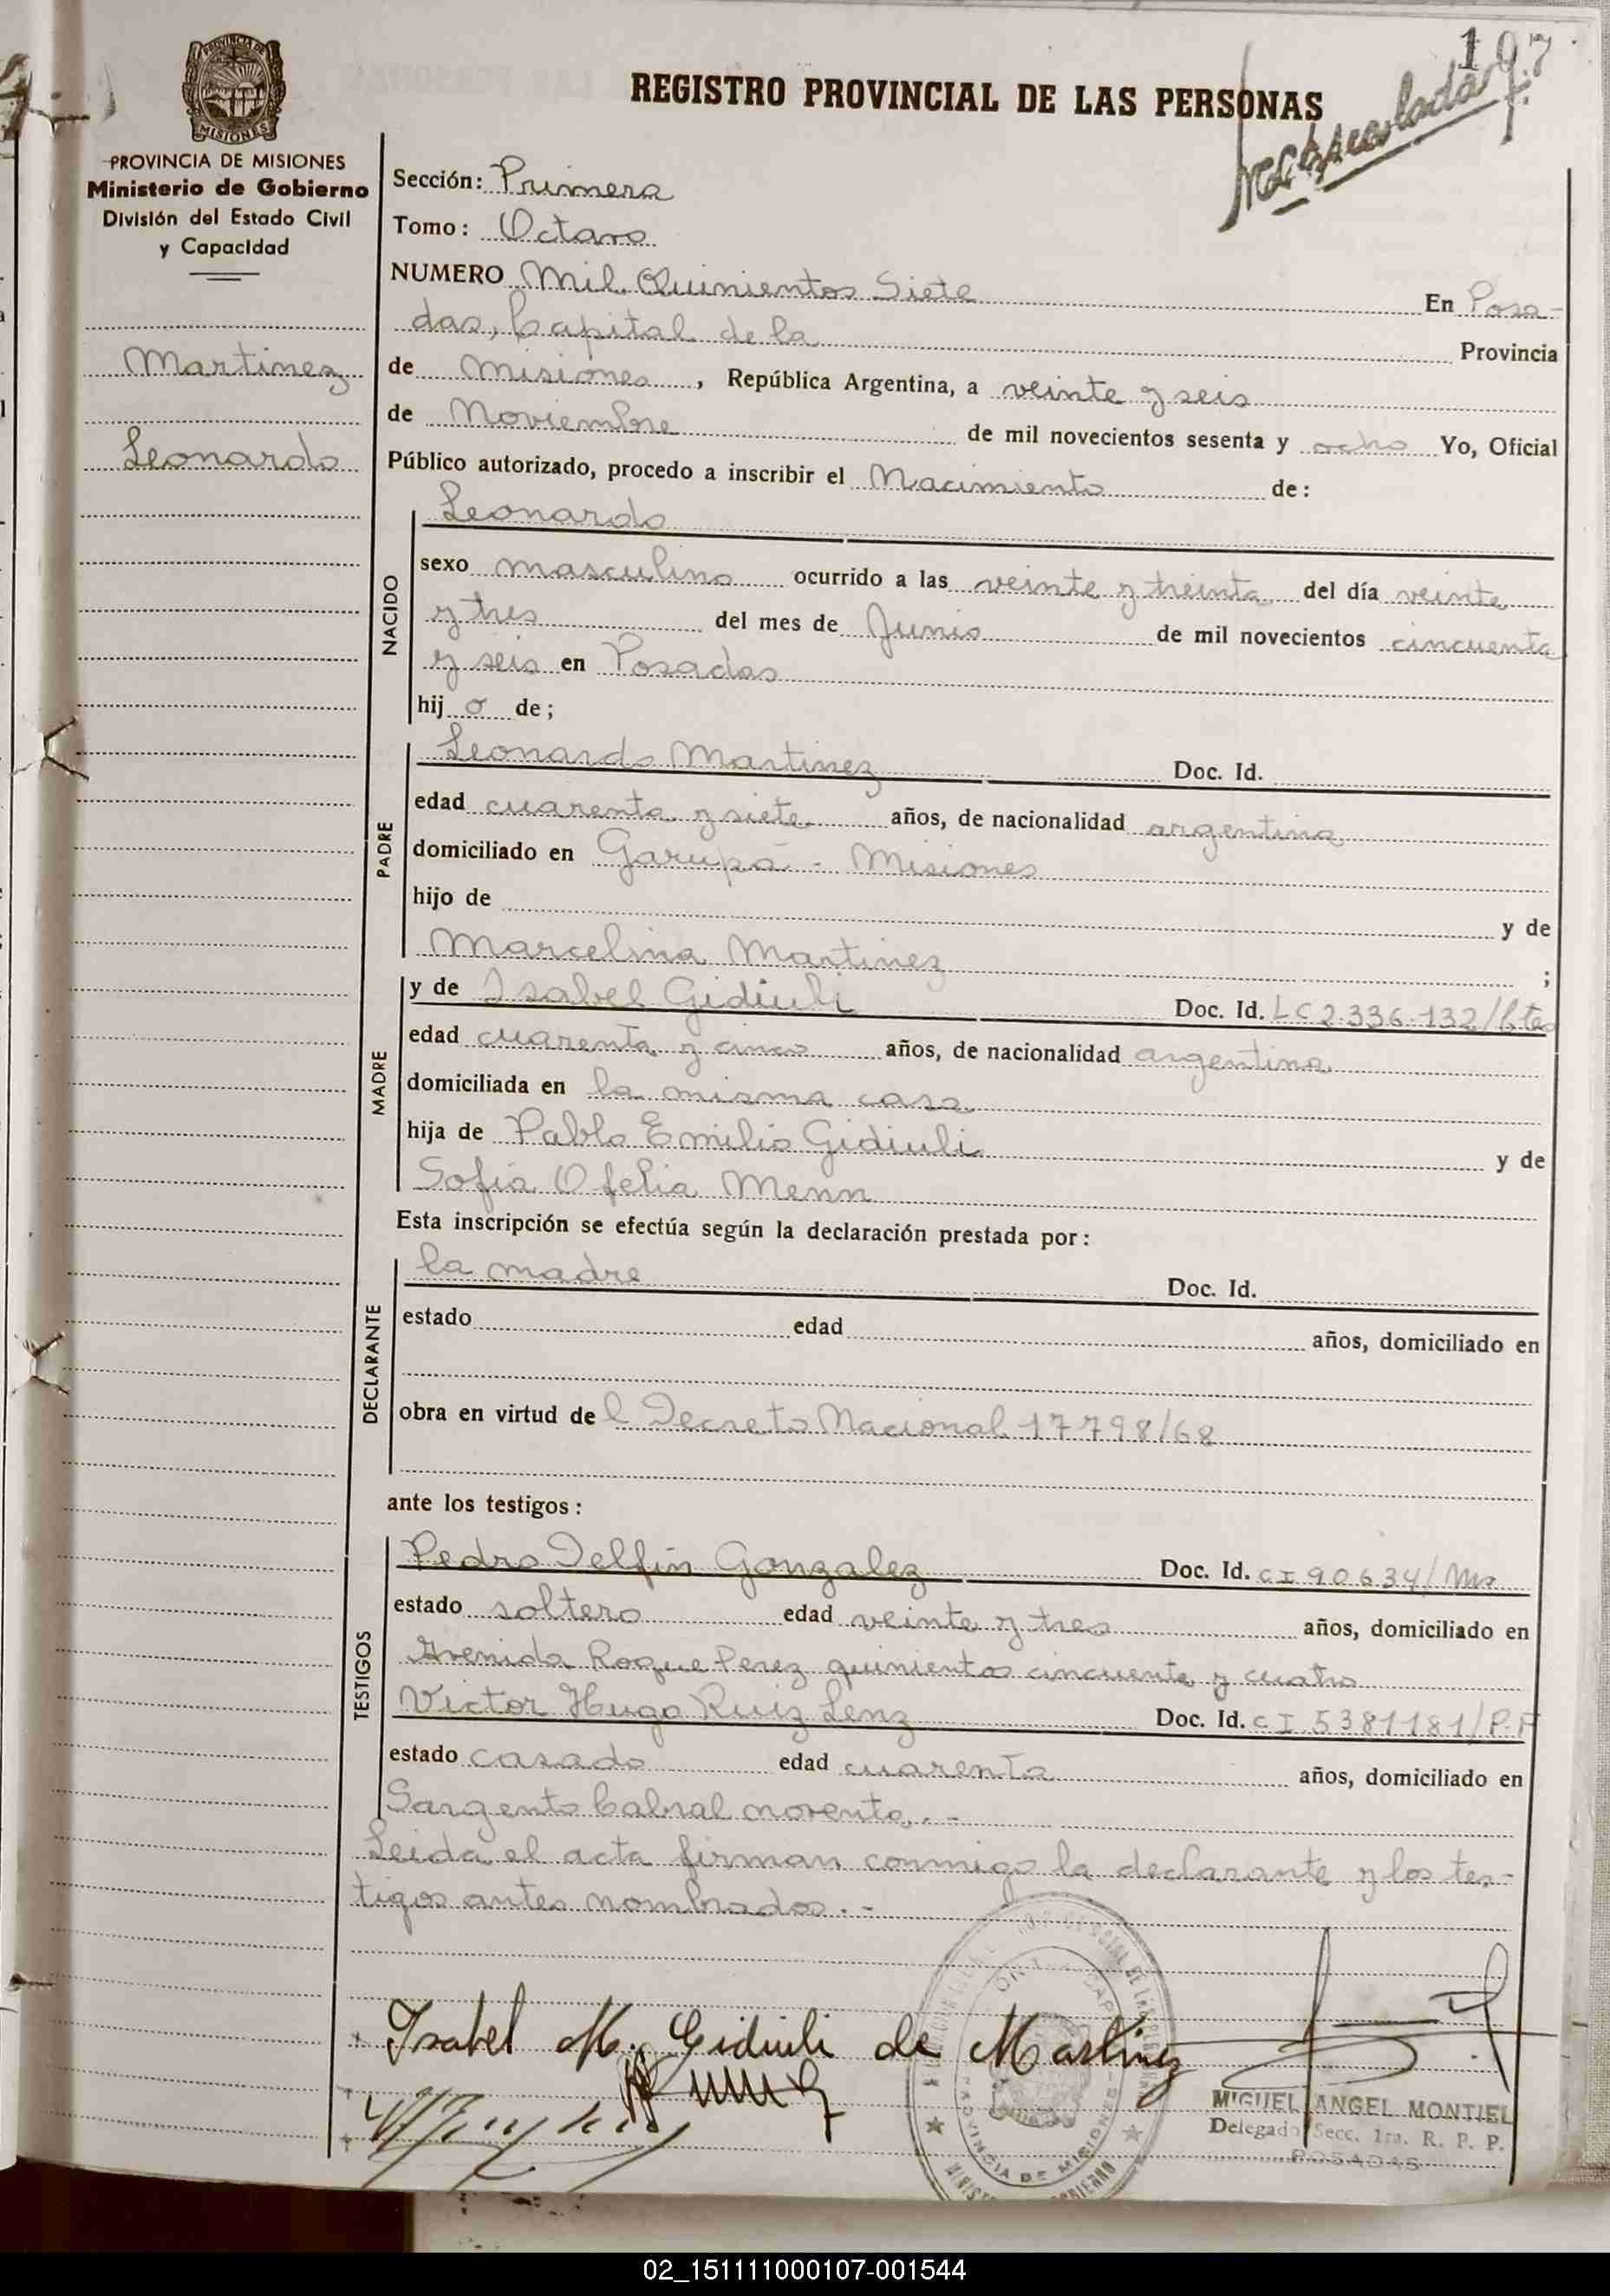 107
Matriculada
REGISTRO PROVINCIAL DE LAS PERSONAS
PROVINCIA DE MISIONES
MISIONES
PROVINCIA DE MISIONES
Ministerio de Gobierno
División del Estado Civil
y Capacidad
Martinez
Leonardo
Sección: Primera
Tomo: Octavo
NUMERO Mil Quinientos Siete En Posa-
das, Capital de la Provincia
de Misiones, República Argentina, a veinte y seis
de Noviembre de mil novecientos sesenta y ocho Yo, Oficial
Público autorizado, procedo a inscribir el Nacimiento de:
NACIDO
Leonardo
sexo masculino ocurrido a las veinte y treinta del día veinte
y tres del mes de Junio de mil novecientos cincuenta
y seis en Posadas
hij o de;
PADRE
Leonardo Martinez Doc. Id.
edad cuarenta y siete años, de nacionalidad argentina
domiciliado en Garupá - Misiones
hijo de y de
Marcelina Martinez ;
MADRE
y de Isabel Gidiuli Doc. Id. LC 2.336.132/Ctes
edad cuarenta y cinco años, de nacionalidad argentina
domiciliada en la misma casa
hija de Pablo Emilio Gidiuli y de
Sofia Ofelia Menn
Esta inscripción se efectúa según la declaración prestada por:
DECLARANTE
la madre Doc. Id.
estado edad años, domiciliado en
obra en virtud de l Decreto Nacional 17798/68
ante los testigos:
TESTIGOS
Pedro Delfin Gonzalez Doc. Id. CI 90634/Ms
estado soltero edad veinte y tres años, domiciliado en
Avenida Roque Perez quinientos cincuenta y cuatro
Victor Hugo Ruiz Lenz Doc. Id. CI 5381181/P.F
estado casado edad cuarenta años, domiciliado en
Sargento Cabral noventa.-
Leida el acta firman conmigo la declarante y los tes-
tigos antes nombrados.-
Isabel M. Gidiuli de Martinez
PROVINCIA DE MISIONES
MIGUEL ANGEL MONTIEL
Delegado Secc. 1ra. R. P. P.
POSADAS
02_151111000107-001544